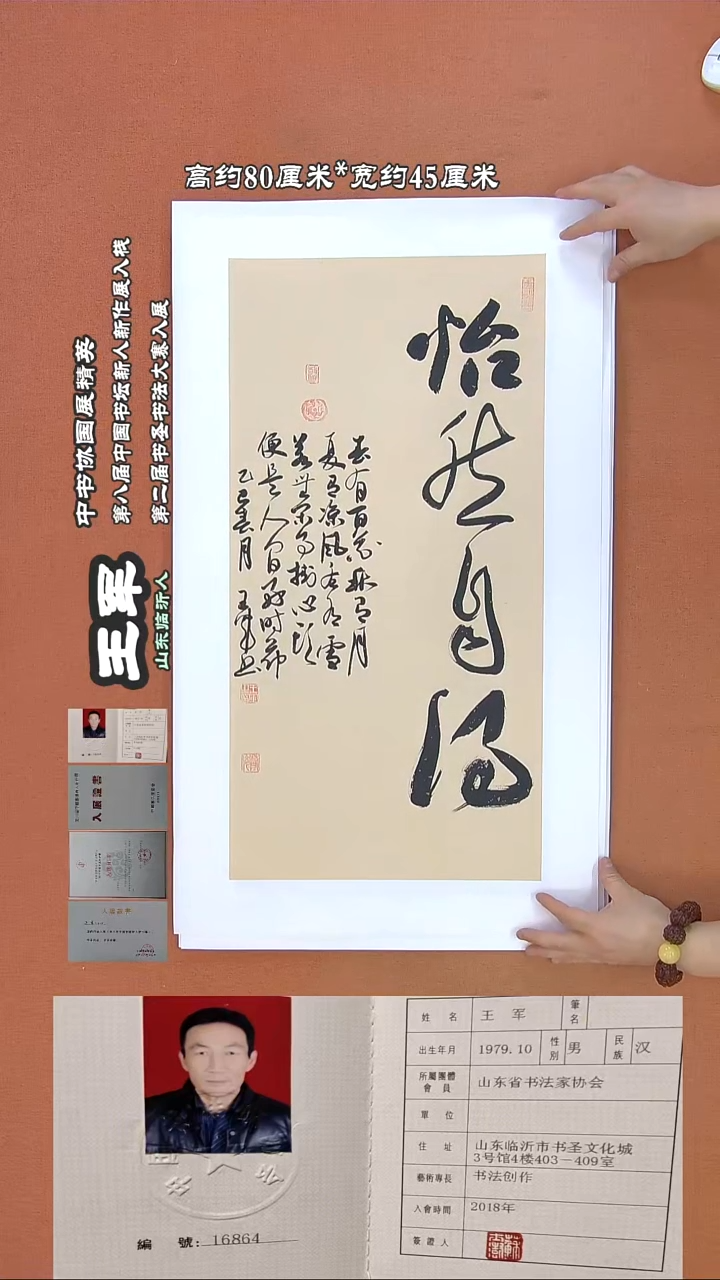 高约80厘米*宽约45厘米
中书协国展精英
第八届中国书坛新人新作展入栈
第二届书圣书法大赛入展
王军
山东临沂人
怡然自得
春有百花秋有月
夏有凉风冬有雪
若无闲事挂心头
便是人间好时节
乙巳春月 王军书
入展證書
姓 名 王 军 筆名
出生年月 1979.10 性別 男 民族 汉
所屬團體會員 山东省书法家协会
單 位
住 址 山东临沂市书圣文化城
3号馆4楼403－409室
藝術專長 书法创作
入會時間 2018年
簽證人
編 號: 16864